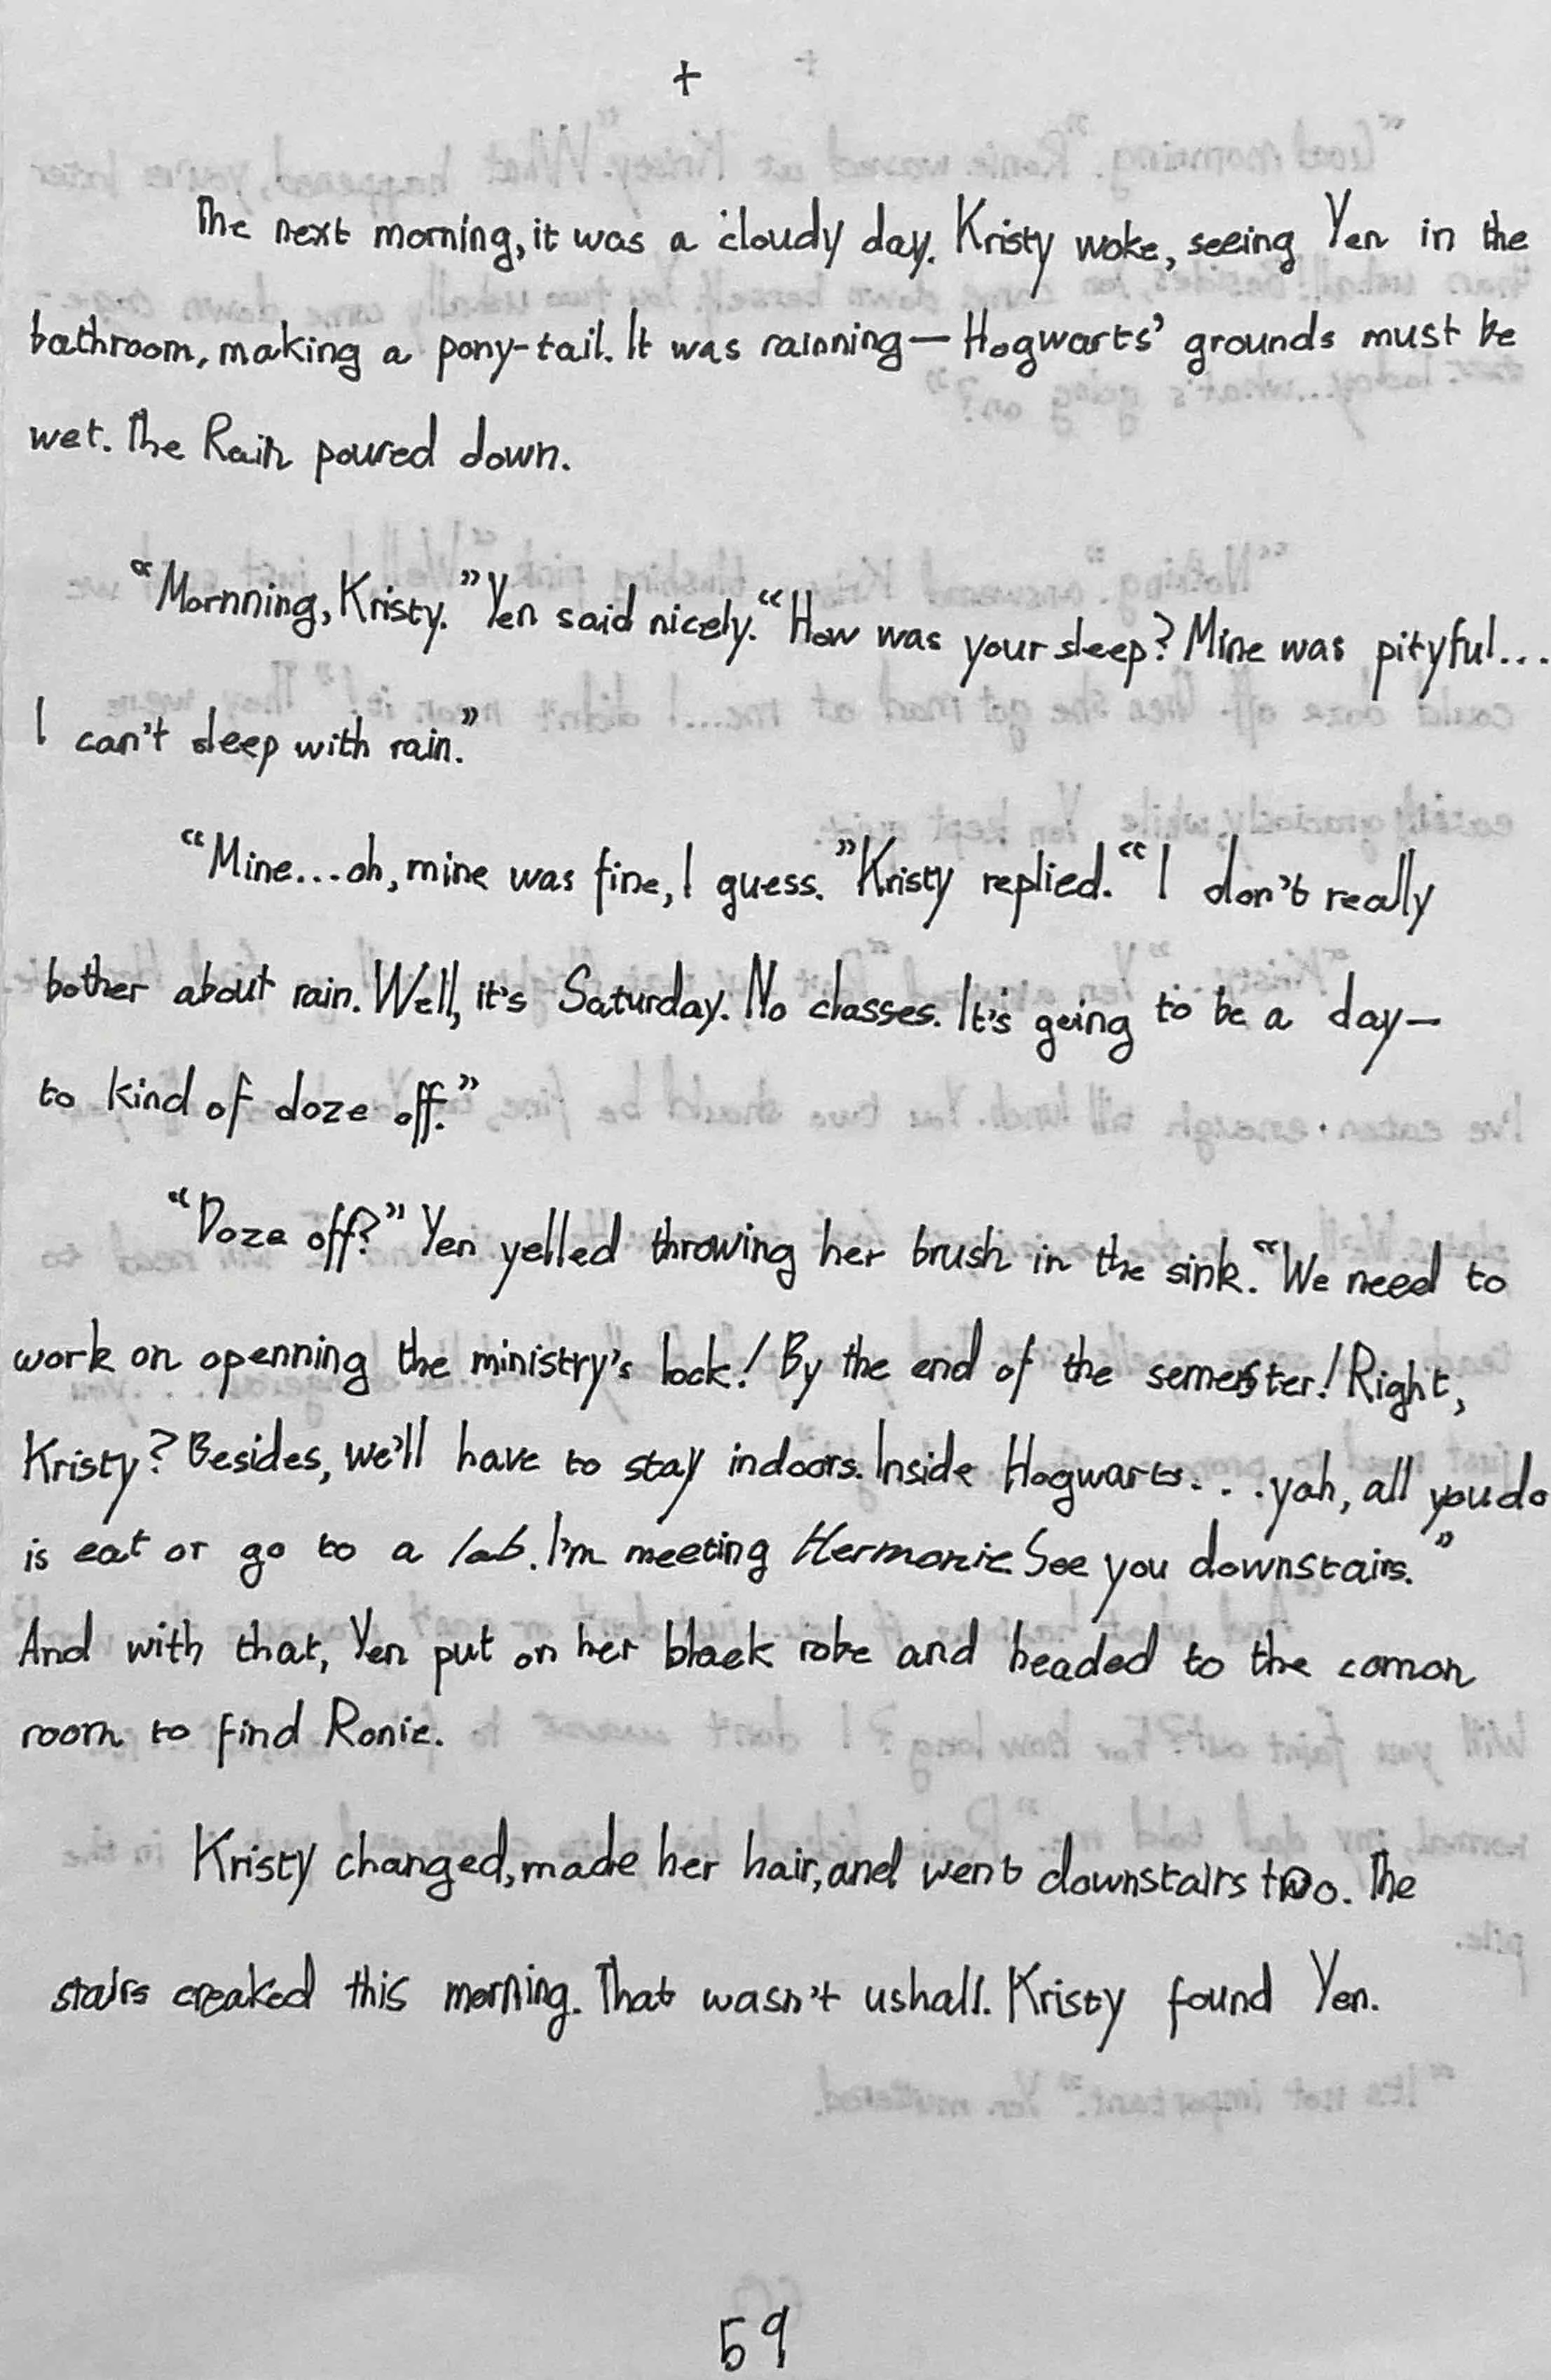 +
The next morning, it was a cloudy day. Kristy woke, seeing Yen in the
bathroom, making a pony-tail. It was rainning — Hogwarts' grounds must be
wet. The Rain poured down.
"Mornning, Kristy." Yen said nicely. "How was your sleep? Mine was pityful...
I can't sleep with rain."
"Mine...oh, mine was fine, I guess." Kristy replied. "I don't really
bother about rain. Well, it's Saturday. No classes. It's going to be a day—
to kind of doze off."
"Doze off?" Yen yelled throwing her brush in the sink. "We need to
work on openning the ministry's lock! By the end of the semester! Right,
Kristy? Besides, we'll have to stay indoors. Inside Hogwarts... yah, all you do
is eat or go to a lab. I'm meeting Hermonie. See you downstairs."
And with that, Yen put on her black robe and headed to the comon
room to find Ronie.
Kristy changed, made her hair, and went downstairs two. The
stairs creaked this morning. That wasn't ushall. Kristy found Yen.
59